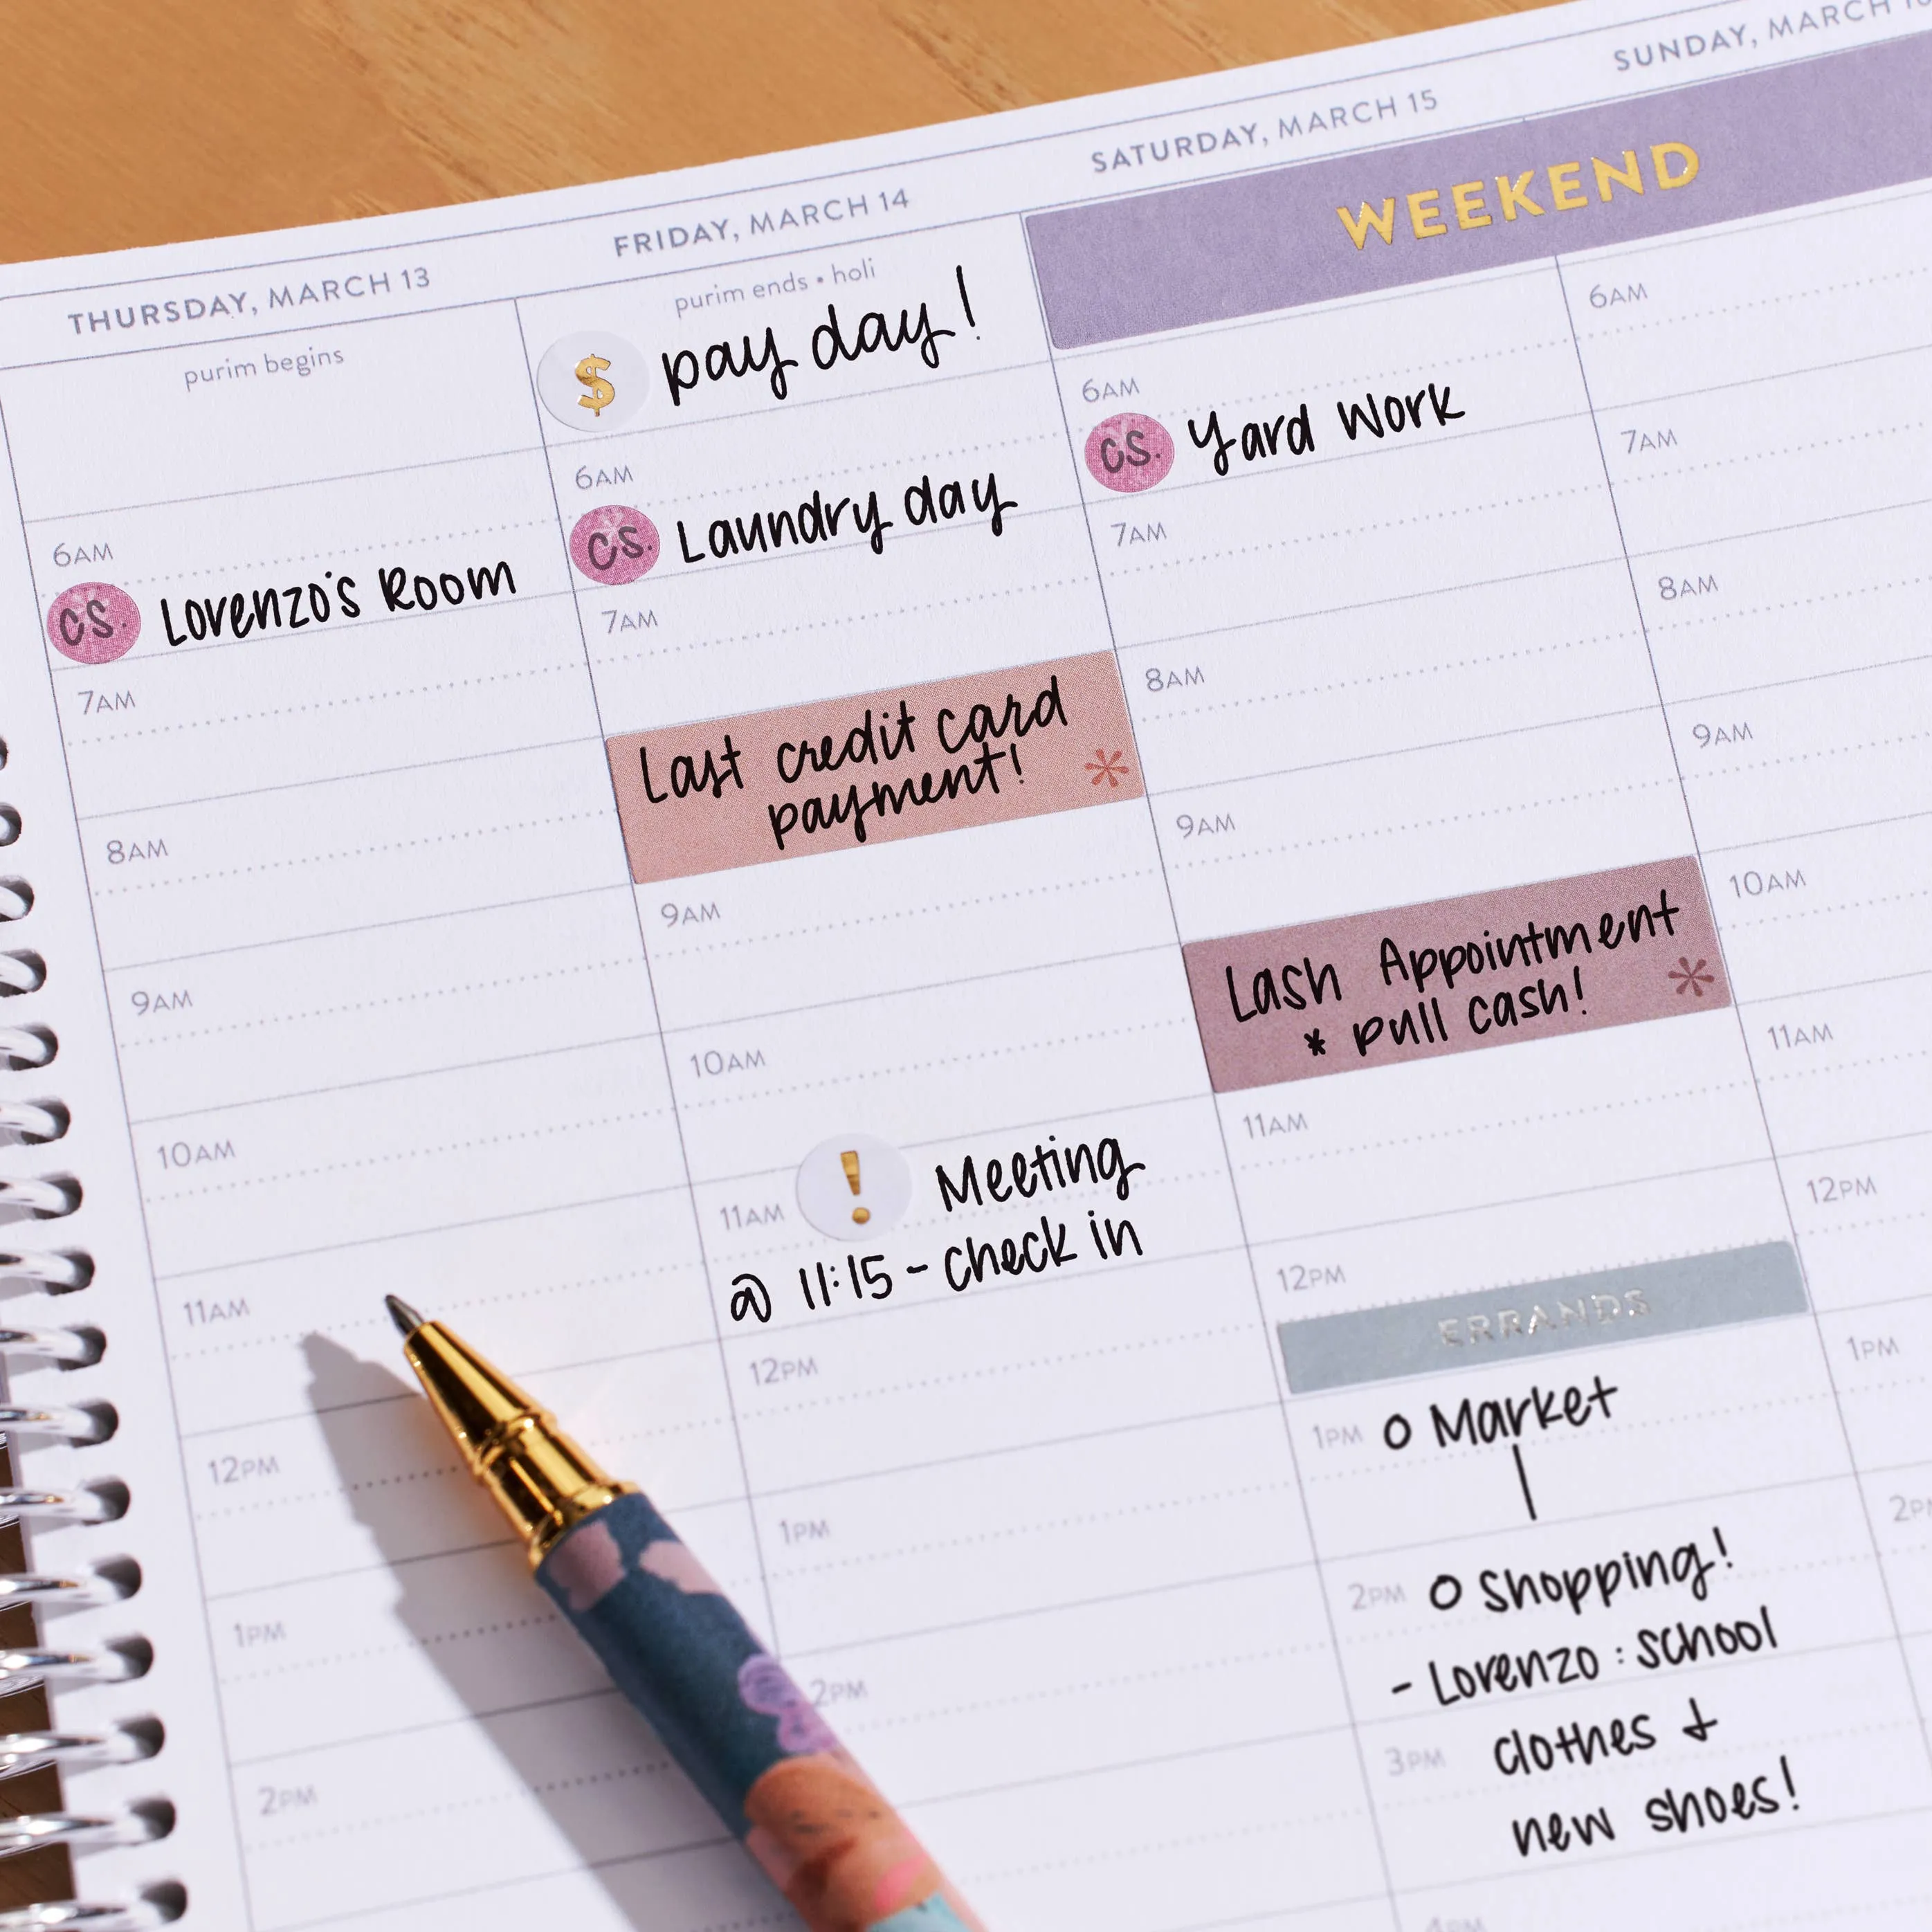 THURSDAY, MARCH 13
purim begins
6AM
CS. Lorenzo's Room
7AM
8AM
9AM
10AM
11AM
12PM
1PM
2PM
FRIDAY, MARCH 14
purim ends • holi
$ pay day!
6AM
CS. Laundry day
7AM
Last credit card
payment! *
9AM
10AM
11AM ! Meeting
@ 11:15 - check in
12PM
1PM
2PM
SATURDAY, MARCH 15
WEEKEND
6AM
CS. Yard Work
7AM
8AM
9AM
Lash Appointment
* pull cash! *
11AM
12PM
ERRANDS
1PM O Market
2PM O Shopping!
- Lorenzo : school
3PM clothes &
new shoes!
4PM
SUNDAY, MARCH
6AM
7AM
8AM
9AM
10AM
11AM
12PM
1PM